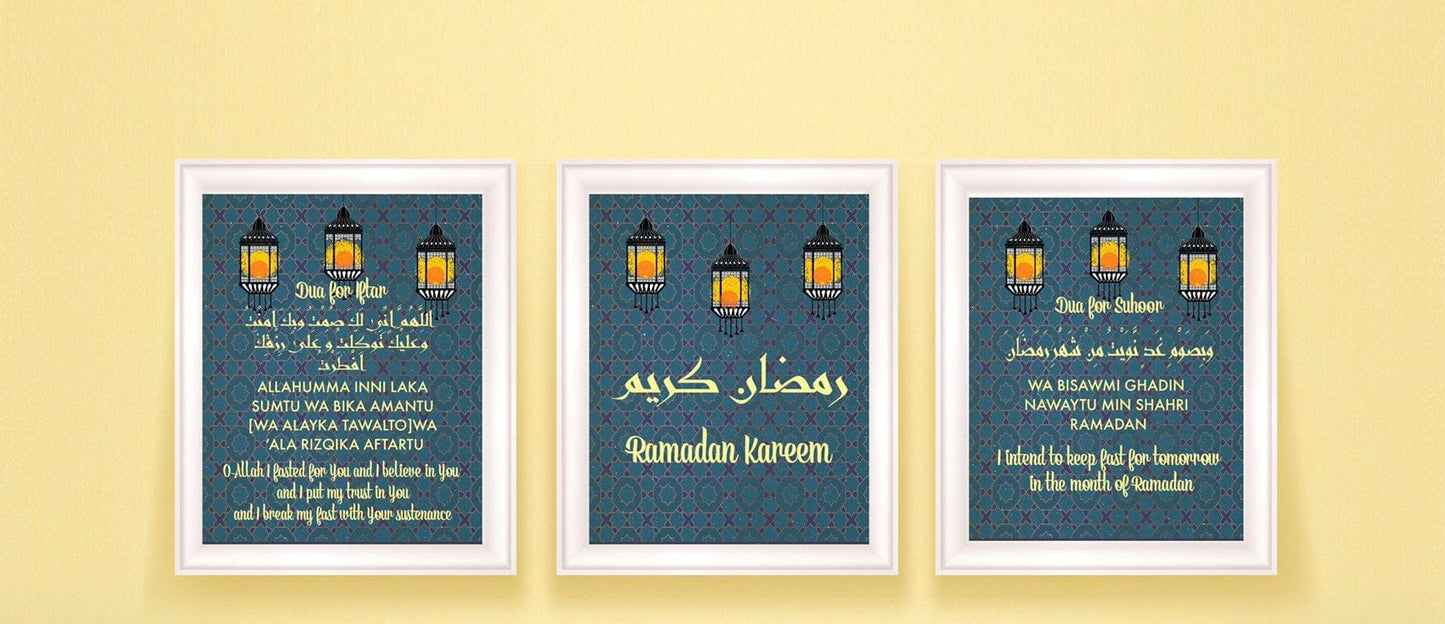 Dua for Iftar
اللَّهُمَّ اِنِّى لَكَ صُمْتُ وَبِكَ اٰمَنْتُ
وَعَلَيْكَ تَوَكَّلْتُ وَ عَلىٰ رِزْقِكَ
اَفْطَرْتُ
ALLAHUMMA INNI LAKA
SUMTU WA BIKA AMANTU
[WA ALAYKA TAWALTO]WA
‘ALA RIZQIKA AFTARTU
O Allah I fasted for You and I believe in You
and I put my trust in You
and I break my fast with Your sustenance
رمضان كريم
Ramadan Kareem
Dua for Suhoor
وَبِصَوْمِ غَدٍ نَّوَيْتُ مِنْ شَهْرِ رَمَضَانَ
WA BISAWMI GHADIN
NAWAYTU MIN SHAHRI
RAMADAN
I intend to keep fast for tomorrow
in the month of Ramadan